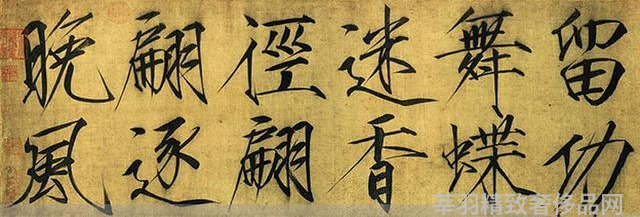 留功
舞蝶
迷香
徑翩
翩逐
晚風
莘羽精致奢侈品网